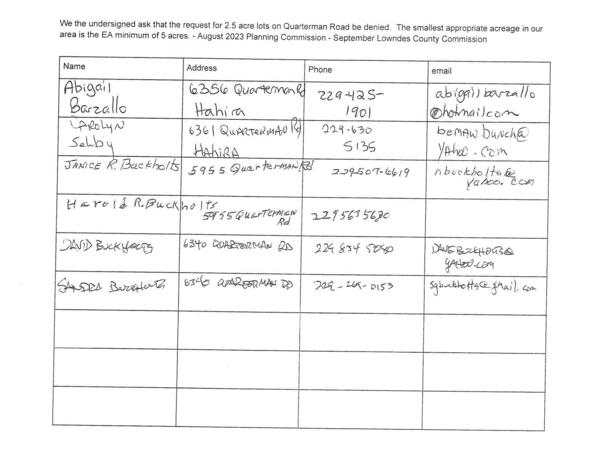 We the undersigned ask that the request for 2.5 acre lots on Quarterman Road be denied. The smallest appropriate acreage in our
area is the EA minimum of 5 acres. - August 2023 Planning Commission - September Lowndes County Commission
Name Address Phone email
Abigail 6356 Quarterman Rd 229-425- abigailbarzallo
Barzallo Hahira 1901 @hotmail.com
Carolyn 6361 QUARTERMAN Rd 229-630 bemawbunch@
Selby HAHIRA 5135 YAhoo.com
JANICE R. Buckholts 5955 Quarterman Rd 229507-6619 nbuckholts@
yahoo.com
Harold R. Buckholts
5955 QUARTERMAN 2295615630
Rd
DAVID BUCKHOLTS 6340 QUARTERMAN RD 229 834 5080
YAHOO.COM
SANDRA BUCKHOLTS 6340 QUARTERMAN RD 229-269-0153 sgbuckholts@gmail.com